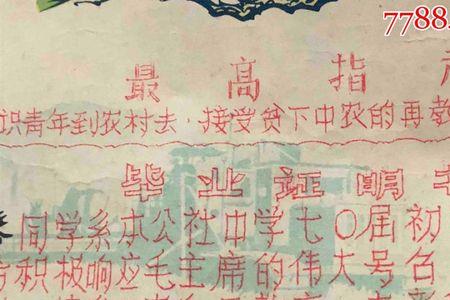 7788
最高指
识青年到农村去,接受贫下中农的再教
毕业证明
同学系本公社中学七〇届初
积极响应毛主席的伟大号召